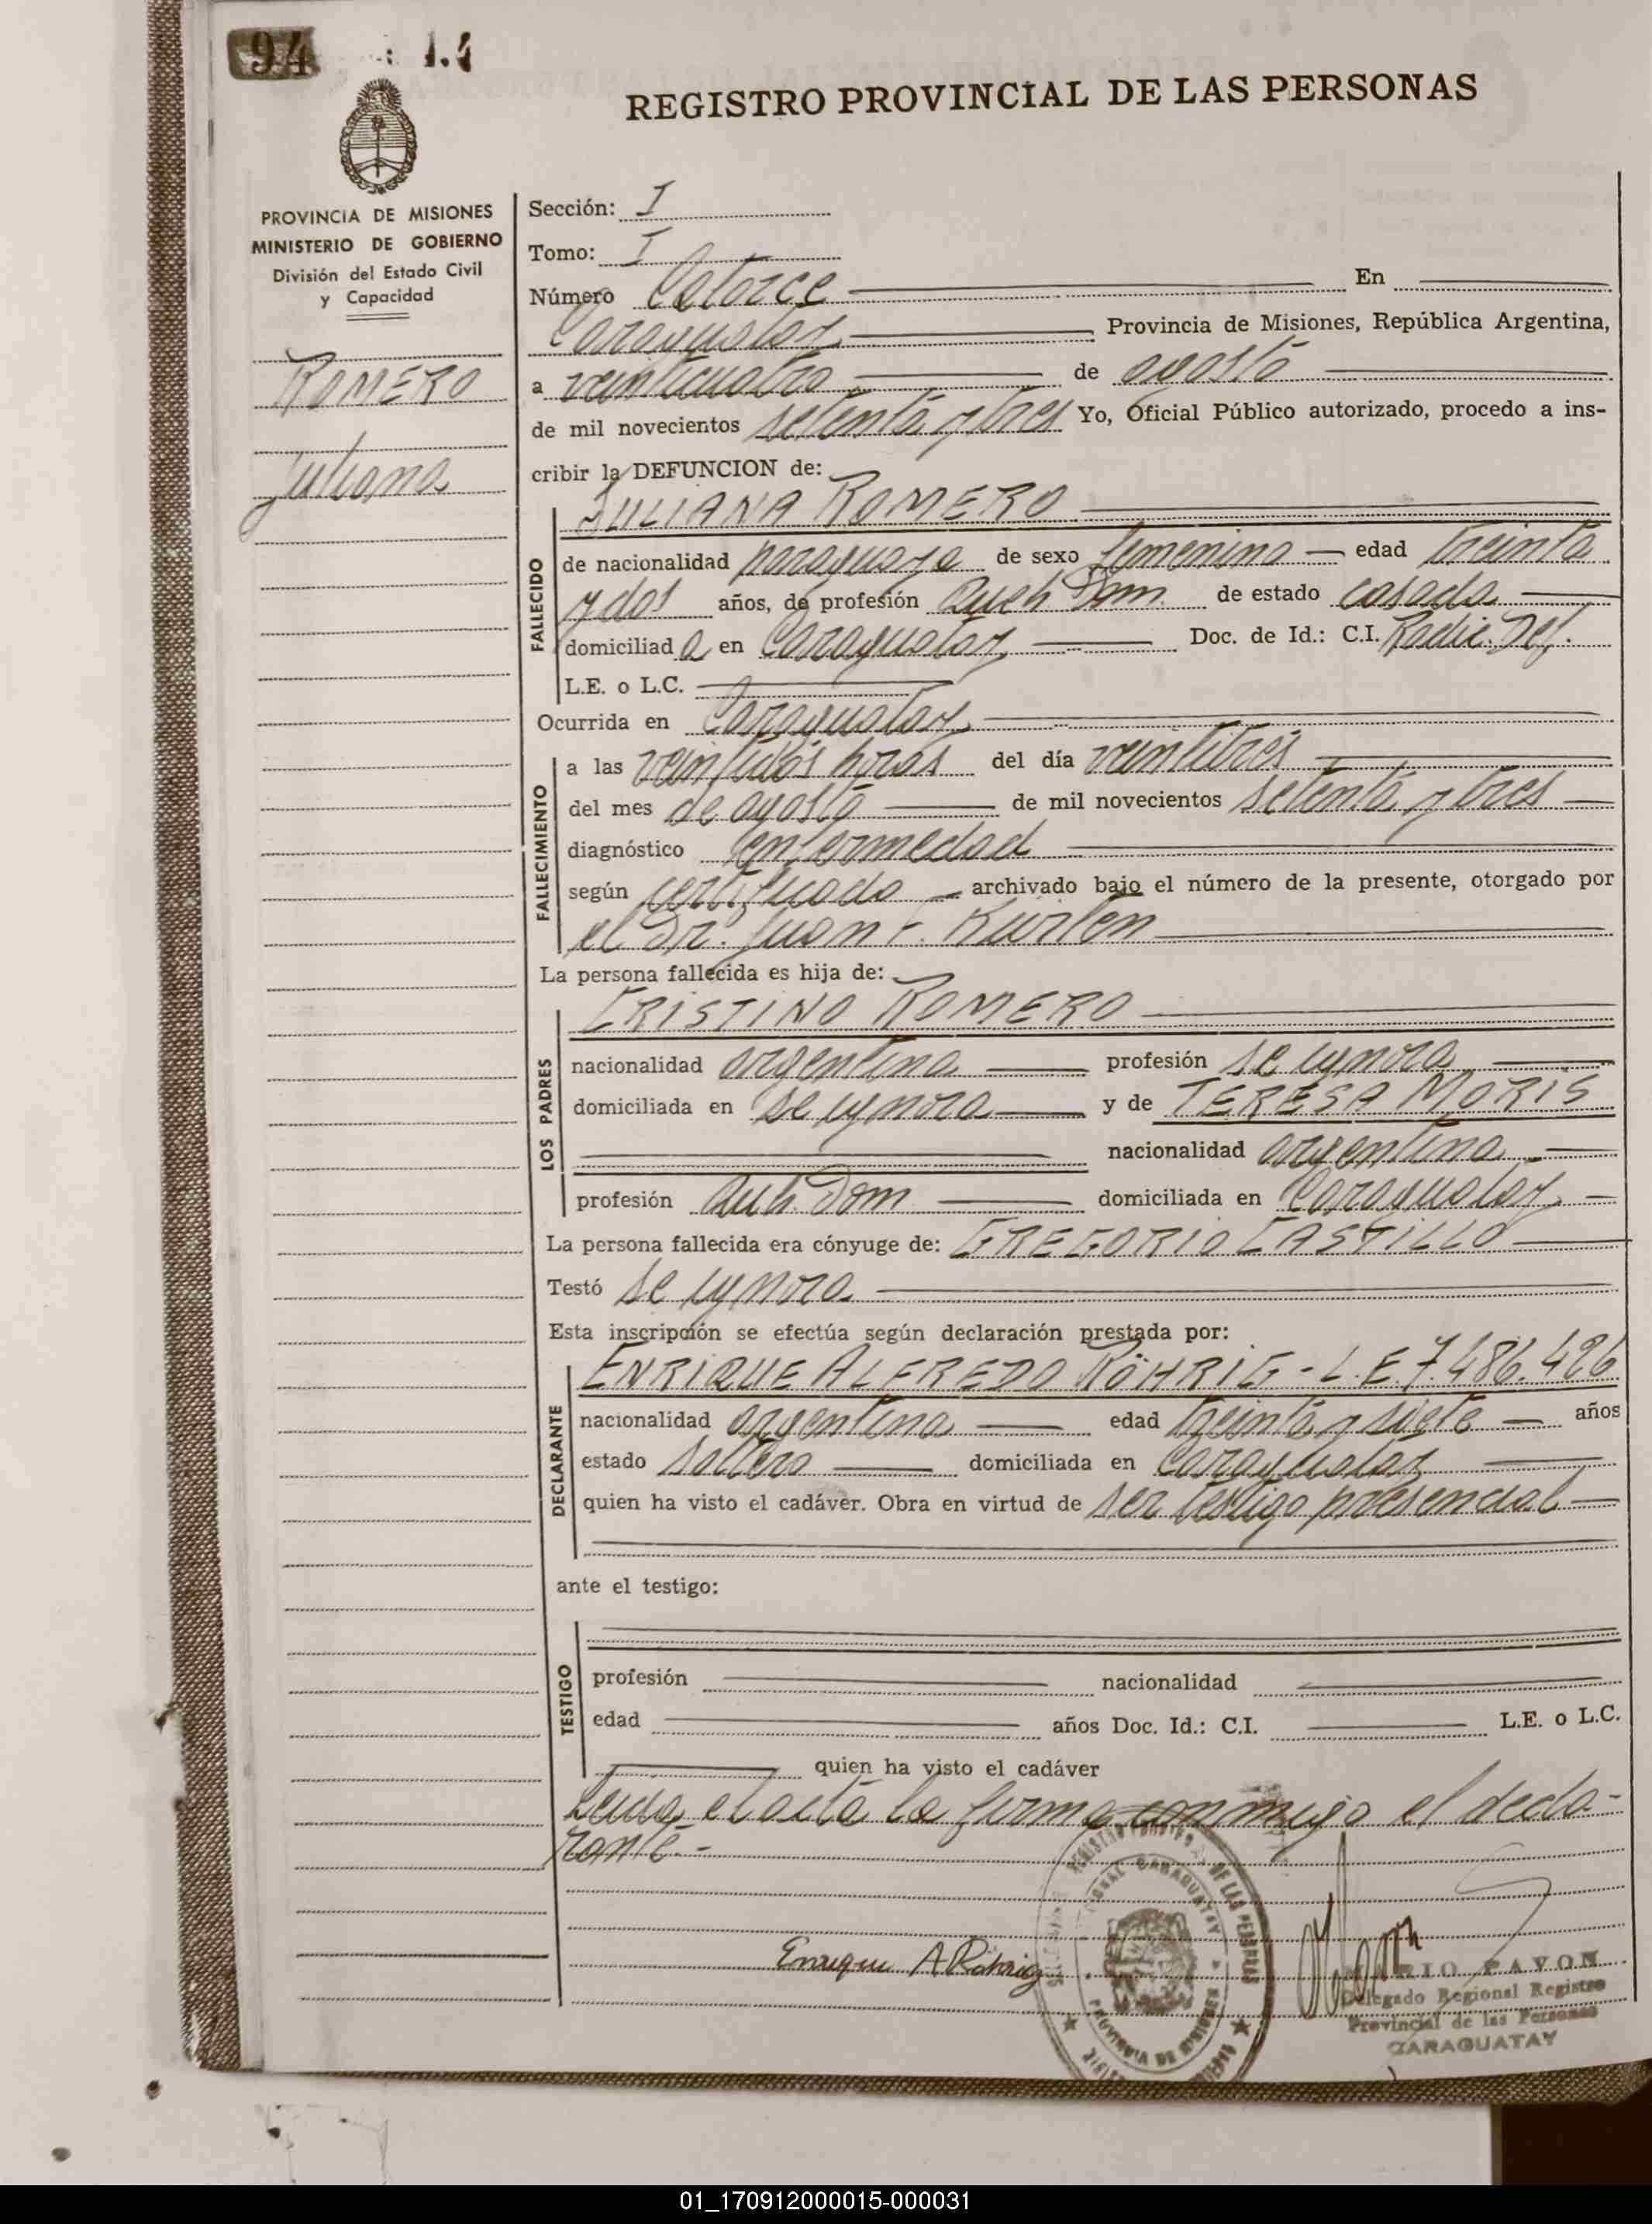 94 : 14
REGISTRO PROVINCIAL DE LAS PERSONAS
PROVINCIA DE MISIONES
MINISTERIO DE GOBIERNO
División del Estado Civil
y Capacidad
ROMERO
Juliana
Sección: I
Tomo: I
Número Catorce En
Caraguatay Provincia de Misiones, República Argentina,
a veinticuatro de agosto
de mil novecientos setenta y tres Yo, Oficial Público autorizado, procedo a ins-
cribir la DEFUNCION de:
JULIANA ROMERO
FALLECIDO
de nacionalidad paraguaya de sexo femenino edad treinta
y dos años, de profesión Queh Dom. de estado casada
domiciliada en Caraguatay Doc. de Id.: C.I. Radic. Def.
L.E. o L.C.
Ocurrida en Caraguatay
FALLECIMIENTO
a las veintidós horas del día veintitrés
del mes de agosto de mil novecientos setenta y tres
diagnóstico enfermedad
según certificado archivado bajo el número de la presente, otorgado por
el Dr. Juan F. Kurten
La persona fallecida es hija de:
CRISTINO ROMERO
LOS PADRES
nacionalidad argentina profesión se ignora
domiciliada en se ignora y de TERESA MORIS
nacionalidad argentina
profesión Queh. Dom domiciliada en Caraguatay
La persona fallecida era cónyuge de: GREGORIO CASTILLO
Testó se ignora
Esta inscripción se efectúa según declaración prestada por:
ENRIQUE ALFREDO RÖHRIG - L.E. 7.486.426
DECLARANTE
nacionalidad argentina edad treinta y siete años
estado soltero domiciliada en Caraguatay
quien ha visto el cadáver. Obra en virtud de ser testigo presencial
ante el testigo:
TESTIGO
profesión nacionalidad
edad años Doc. Id.: C.I. L.E. o L.C.
quien ha visto el cadáver
Leida el acta la firma conmigo el decla-
rante.-
Enrique A Röhrig
REGISTRO PROVINCIAL DE LAS PERSONAS
CARAGUATAY
PROVINCIA DE MISIONES
MARIO PAVON
Delegado Regional Registro
Provincial de las Personas
CARAGUATAY
01_170912000015-000031